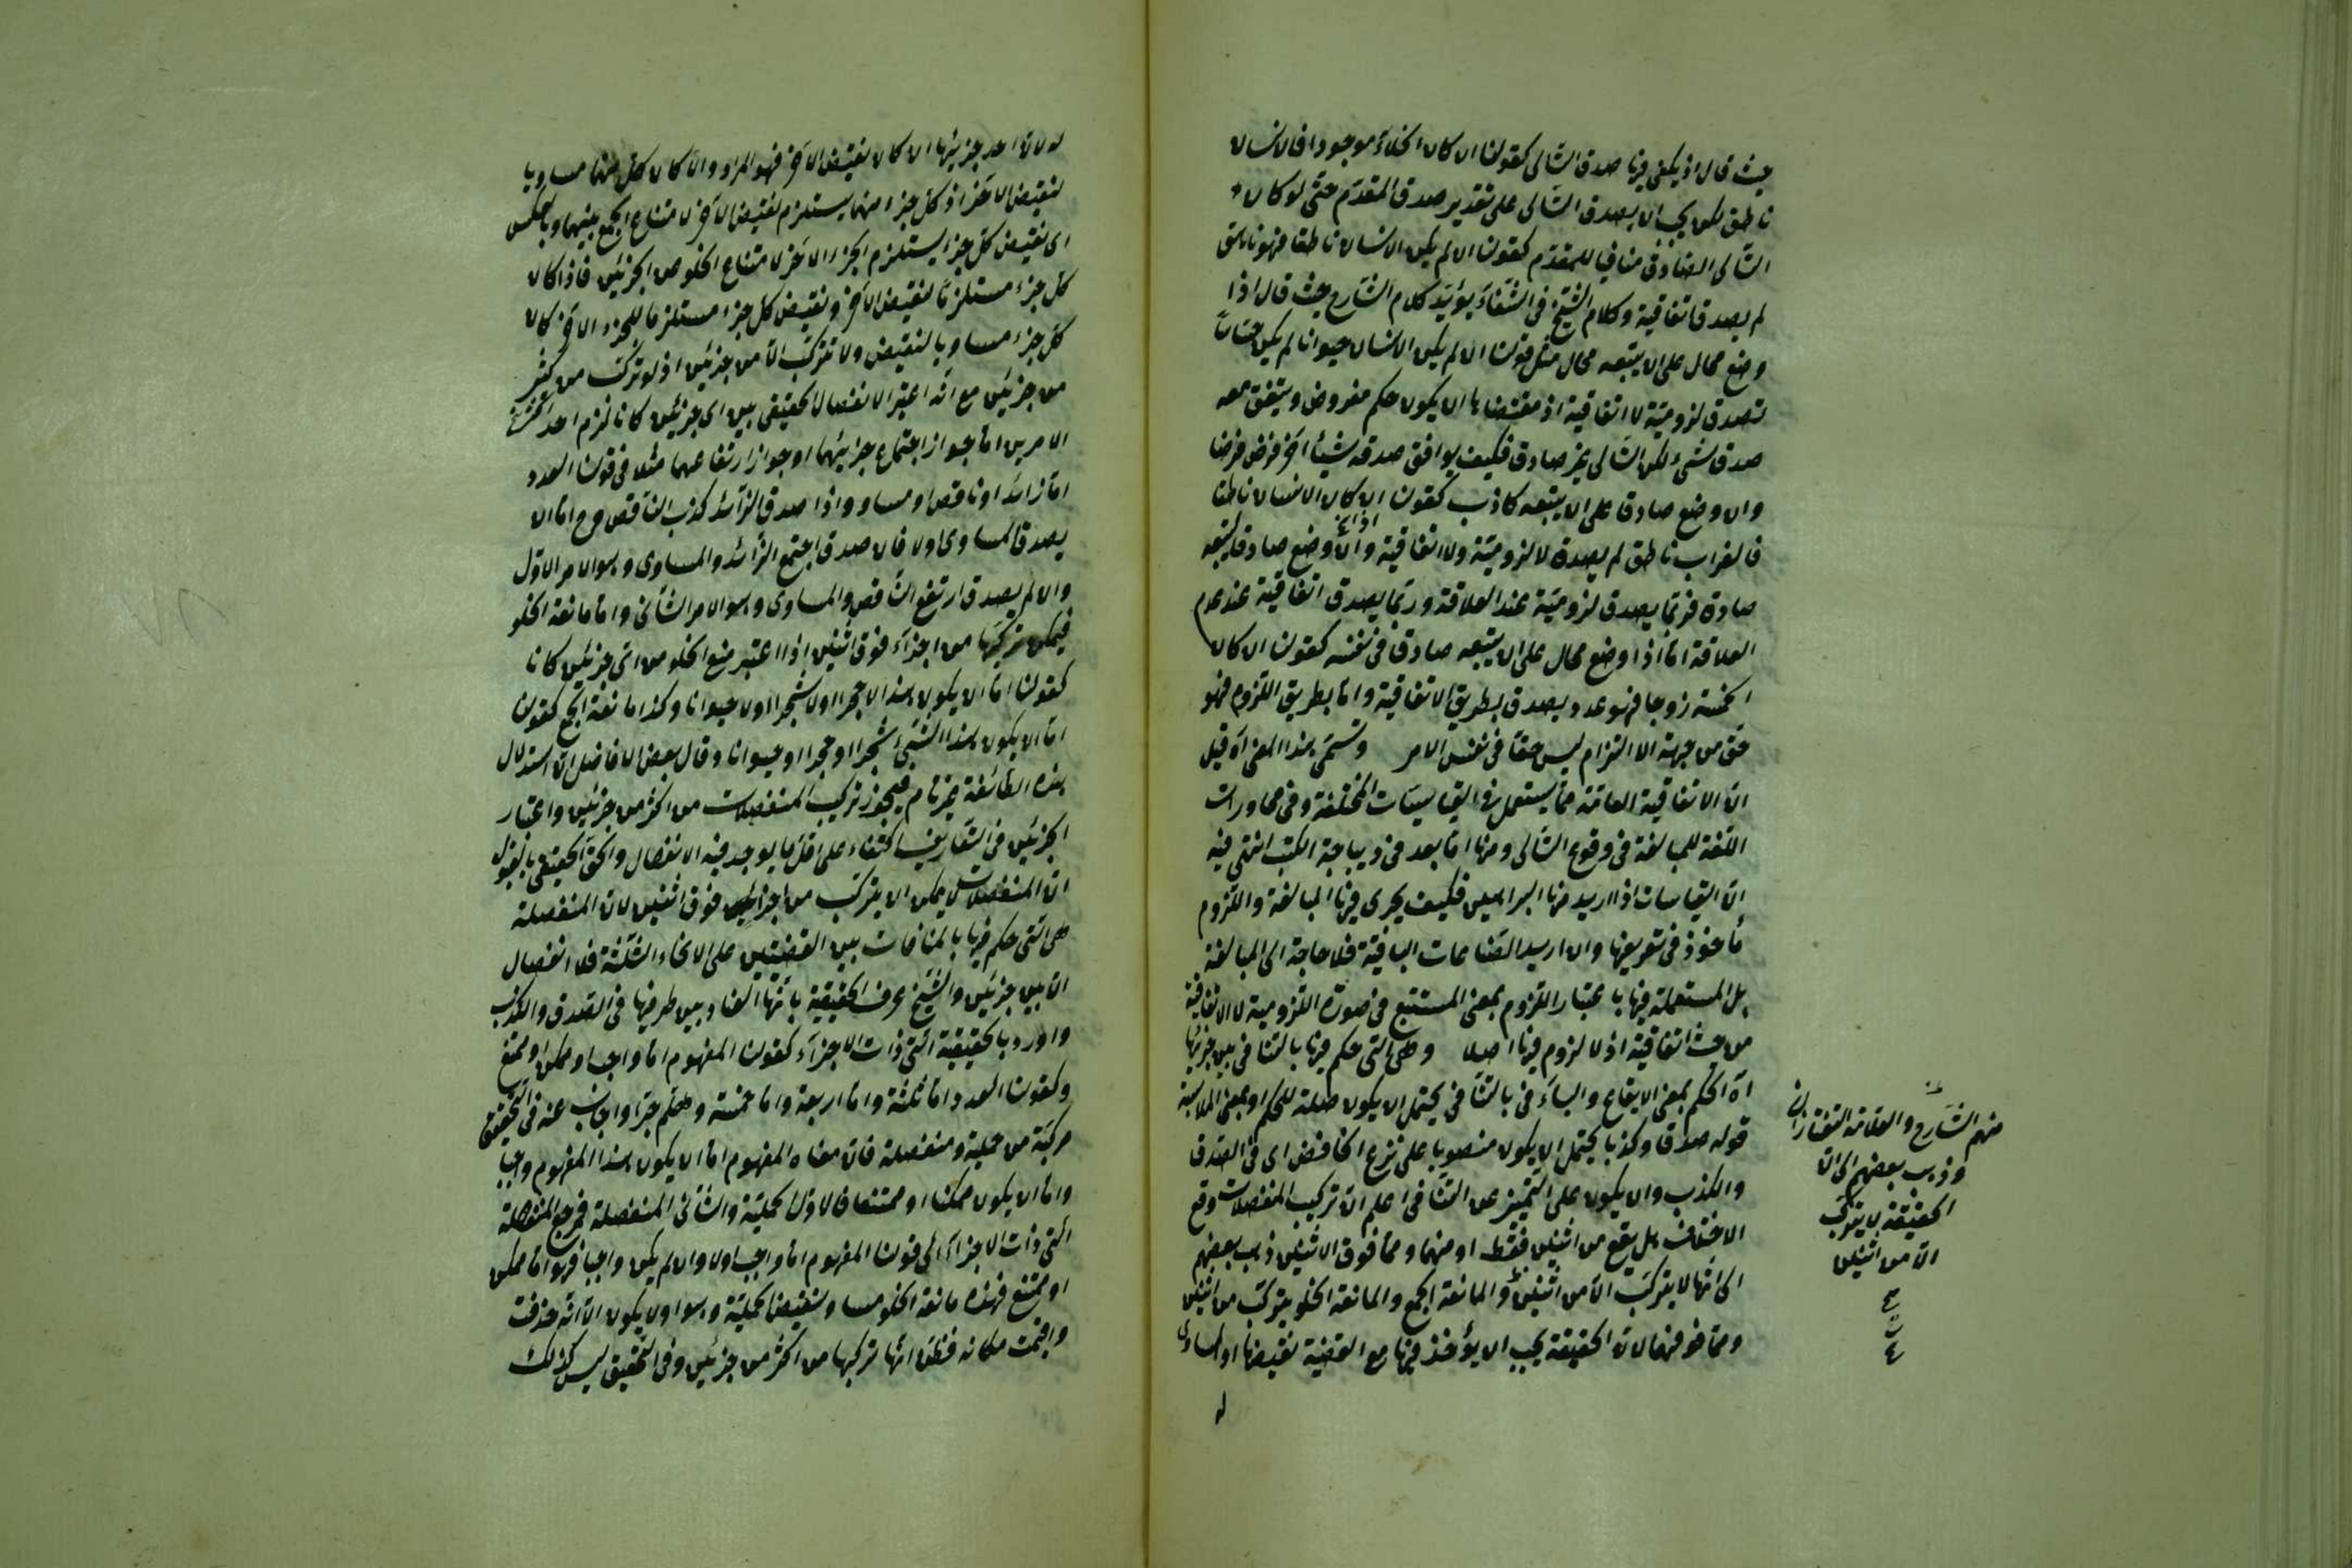 حيث قال اذ يكفى فيها صدق التالى كقولنا ان كان الخلاء موجودا فالانسان
ناطق لكن يجب ان يصدق التالى على تقدير صدق المقدم حتى لو كان
التالى الصادق منافيا للمقدم كقولنا ان لم يكن الانسان ناطقا فهو ناطق
لم يصدق اتفاقية وكلام الشيخ فى الشفاء يؤيد كلام الشارح حيث قال اذا
وضع محال على ان يتبعه محال مثل قولنا ان لم يكن الانسان حيوانا لم يكن حساسا
تصدق لزومية لا اتفاقية اذ مقتضاها ان يكون حكم مفروض ويتفق معه
صدق شىء لكن التالى غير صادق فكيف يوافق صدقه شيئا آخر فرض فرضا
وان وضع صادقا على ان يتبعه كاذب كقولنا ان كان الانسان ناطقا
فالغراب ناطق لم يصدق لا لزومية ولا اتفاقية واما اذا وضع صادق ليتبعه
صادق فربما يصدق لزومية عند العلاقة وربما يصدق اتفاقية عند عدم
العلاقة اما اذا وضع محال على ان يتبعه صادق فى نفسه كقولنا ان كان
الخمسة زوجا فهو عدد يصدق بطريق الاتفاقية واما بطريق اللزوم فهو
حق من جهة الالتزام ليس حقا فى نفس الامر وتسمى بهذا المعنى آه قيل
ان الاتفاقية العامة مما يستعمل فى القياسيات الخلفية وفى محاورات
اللغة للمبالغة فى وقوع التالى ومنها اما بعد فى ديباجة الكتب انتهى فيه
ان القياسات اذا اريد منها البراهين فكيف يجرى فيها المبالغة واللزوم
مأخوذ فى تعريفها وان اريد الصناعات الباقية فلا حاجة الى المبالغة
بل المستعملة فيها باعتبار اللزوم بمعنى المستتبع فى صورة اللزومية لا الاتفاقية
من حيث اتفاقية اذ لا لزوم فيها اصلا وهى التى حكم فيها بالتنافى بين جزئيها
آه الحكم بمعنى الايقاع والباء فى بالتنافى يحتمل ان يكون صلة للحكم او بمعنى الملابسة
قوله صدقا وكذبا يحتمل ان يكون منصوبا على نزع الخافض اى فى الصدق
والكذب وان يكون على التميز عن التنافى اعلم ان تركيب المنفصلات وقع
الاختلاف هل يقع من اثنين فقط او منهما ومما فوق الاثنين ذهب بعضهم
الى انها لا يتركب الا من اثنين والمانعة الجمع والمانعة الخلو يتركب من اثنين
ومما فوقهما لان الحقيقة يجب ان يؤخذ فيها مع القضية نقيضها او المساوى
له
منهم الشارح والعلامة التفتازانى
وذهب بعضهم الى ان
الحقيقة لا يتركب
الا من اثنين
له لان احد جزئيها ان كان نقيض الآخر فهو المراد والا كان كل منهما مساويا
لنقيض الآخر اذ كل جزء منهما يستلزم نقيض الآخر لامتناع الجمع بينهما وبالعكس
اى نقيض كل جزء يستلزم الجزء الآخر لامتناع الخلو من الجزئين فاذا كان
كل جزء مستلزما لنقيض الآخر ونقيض كل جزء مستلزما للجزء الآخر كان
كل جزء مساويا لنقيض ولا تتركب الا من جزئين اذ لو تركب من كثير
من جزئين مع انه اعتبر الانفصال الحقيقى بين اى جزئين كانا لزم احد
الامرين اما جواز اجتماع جزئيهما او جواز ارتفاعهما مثلا فى قولنا العدد
اما زائد او ناقص او مساو واذا صدق الزائد كذب الناقص وح اما ان
يصدق المساوى اولا فان صدق اجتمع الزائد والمساوى وهو الامر الاول
وان لم يصدق ارتفع الناقص والمساوى وهو الامر الثانى واما مانعة الخلو
فيمكن تركيبها من اجزاء فوق اثنين اذا اعتبر منع الخلو من اى جزئين كانا
كقولنا اما ان يكون هذا لا حجرا او لا شجرا او لا حيوانا وكذا مانعة الجمع كقولنا
اما ان يكون هذا الشىء شجرا او حجرا او حيوانا وقال بعض الافاضل ان استدلال
هذه الطائفة غير تام فيجوز تركيب المنفصلات من اكثر من جزئين واعتبار
الجزئين فى التعاريف اكتفاء على اقل ما يوجد فيه الانفصال والحق الحقيق بالقبول
ان المنفصلات لا يمكن ان يتركب من اجزاء فوق اثنين لان المنفصلة
هى التى حكم فيها بالمنافات بين القضيتين على الانحاء الثلثة فلا انفصال
الا بين جزئين والشيخ عرف الحقيقية بانها العناد بين طرفيها فى الصدق والكذب
واورد بالحقيقية التى ذات الاجزاء كقولنا المفهوم اما واجب او ممكن او ممتنع
وكقولنا العدد اما ثلثة واما اربعة واما خمسة وهلم جرا واجاب عنه فى التحقيق
مركبة من حملية ومنفصلة فان معناه المفهوم اما ان يكون هذا المفهوم واجبا
واما ان يكون ممكنا او ممتنعا فالاول الحملية والثانى المنفصلة فمرجع المنفصلة
التى ذات الاجزاء الى قولنا المفهوم اما واجب اولا وان لم يكن واجبا فهو اما ممكن
او ممتنع فهذه مانعة الخلو مساو لنقيض الحملية وهو اولا يكون الا انه حذفت
واقيمت مكانه فظن انها تركيبها من اكثر من جزئين وفى التحقيق ليس كذلك